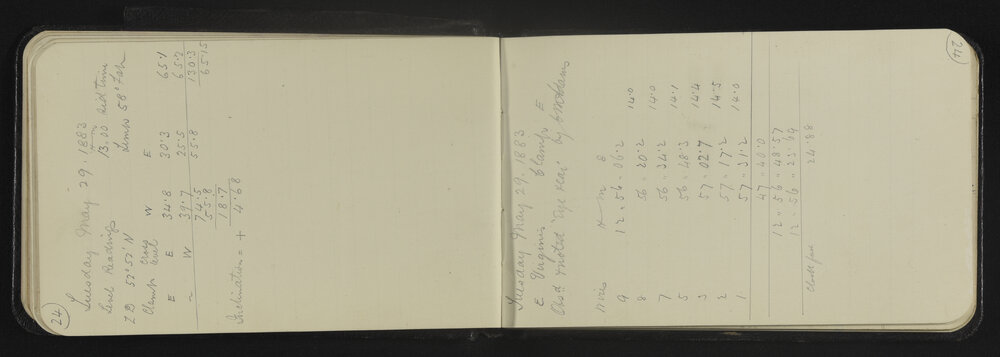 24
Tuesday May 29 1883
Level Readings 13.00 Sid Time
Z D 52° 52' N Temp 58° Fah
Clamp Cross level W E
E E 34.8 30.3 65.1
W 39.7 25.5 65.2
74.5 55.8 130.3
55.8 65.15
18.7
Inclination = + 4.68
24
Tuesday May 29. 1883
E Virginis Clamp E
Obsd Noted "Eye & Ear" by
Wires H m S
9 12 . 56 . 06.2 14.0
8 56 . 20.2 14.0
7 56 . 34.2 14.1
5 56 . 48.3 14.4
3 57 . 02.7 14.5
2 57 . 17.2 14.0
1 57 . 31.2
47 . 40.0
12 . 56 . 48.57
12 . 56 . 23.69
Clock fast 24.88